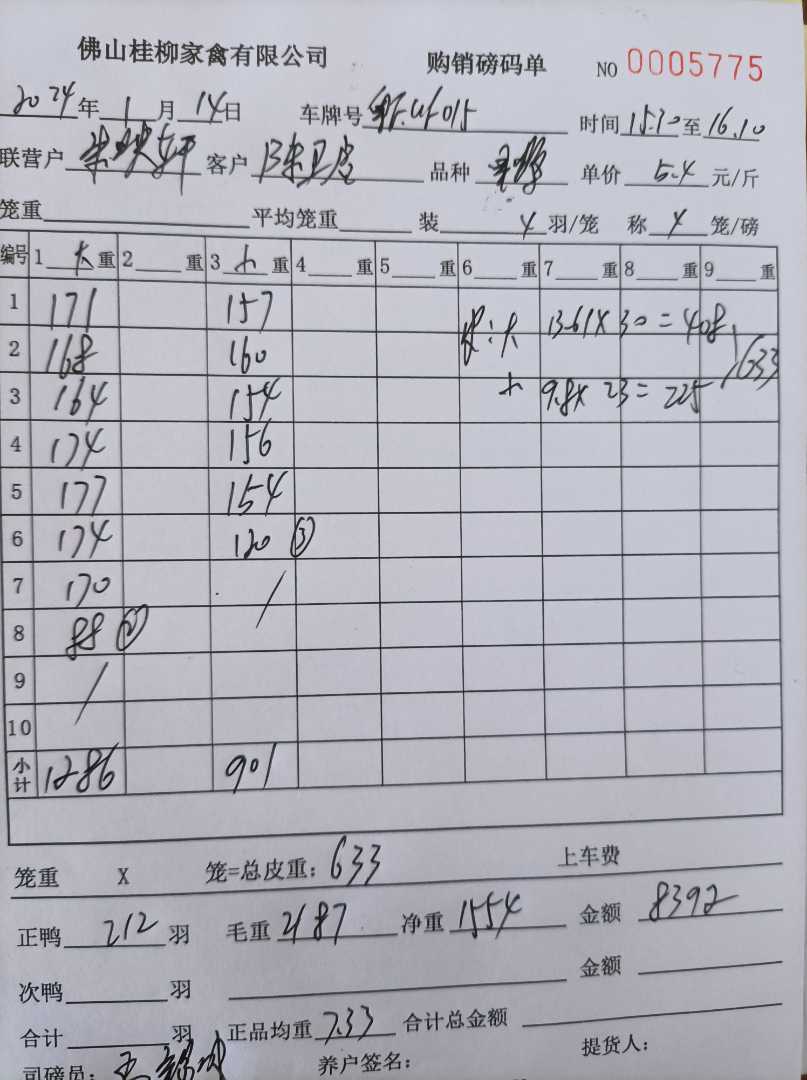 佛山桂柳家禽有限公司 购销磅码单 NO 0005775
2024年1月14日 车牌号 时间15.30至16.10
联营户 客户 品种 单价5.4元/斤
笼重 平均笼重 装4羽/笼 称4笼/磅
编号 1大重 2重 3小重 4重 5重 6重 7重 8重 9重
1 171 157 皮:大 13.61X30=408
2 168 160 633
3 164 154 小 9.8X23=225
4 174 156
5 177 154
6 174 120 ③
7 170 /
8 88 ②
9 /
10
小计 1286 901
笼重 X 笼=总皮重:633 上车费
正鸭212羽 毛重2187 净重1554 金额8392
次鸭羽 金额
合计羽 正品均重7.33 合计总金额
司磅员: 养户签名: 提货人: